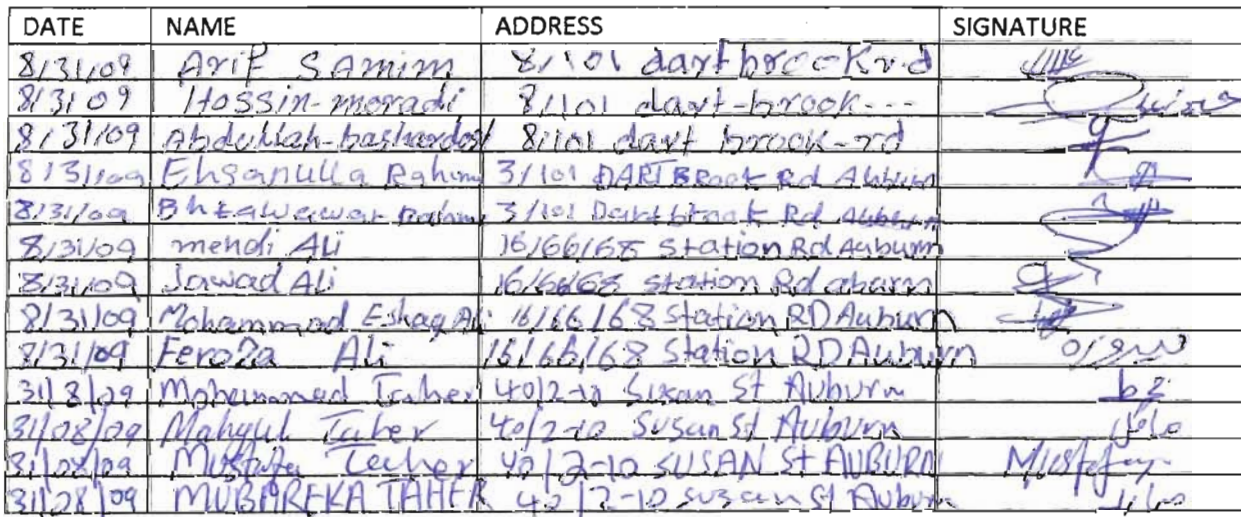 DATE NAME ADDRESS SIGNATURE
8/31/09 Arif SAMIM 8/101 dartbrook rd
8/31 09 Hossin-moradi 8/101 dart-brook---
8/31/09 Abdullah-bashardost 8/101 dart brook-rd
8/31/09 Ehsanulla Rahimi 3/101 DARTBROOK Rd Auburn
8/31/09 Rahimi 3/101 Dartbrook Rd Auburn
8/31/09 mehdi Ali 16/66/68 Station Rd Auburn
8/31/09 Jawad Ali 16/66/68 station Rd abarn
8/31/09 Mohammad Eshaq Ali 16/66/68 Station RD Auburn
8/31/09 Feroza Ali 16/66/68 Station RD Auburn فیروزه
31/8/09 Mohammed Taher 40/2-10 Susan St Auburn
31/08/09 Mahgul Taher 40/2-10 Susan St Auburn
31/08/09 Mustafa Taher 40/2-10 SUSAN St AUBURN Mustafa
31/08/09 MUBAREKA TAHER 40/2-10 susan St Auburn